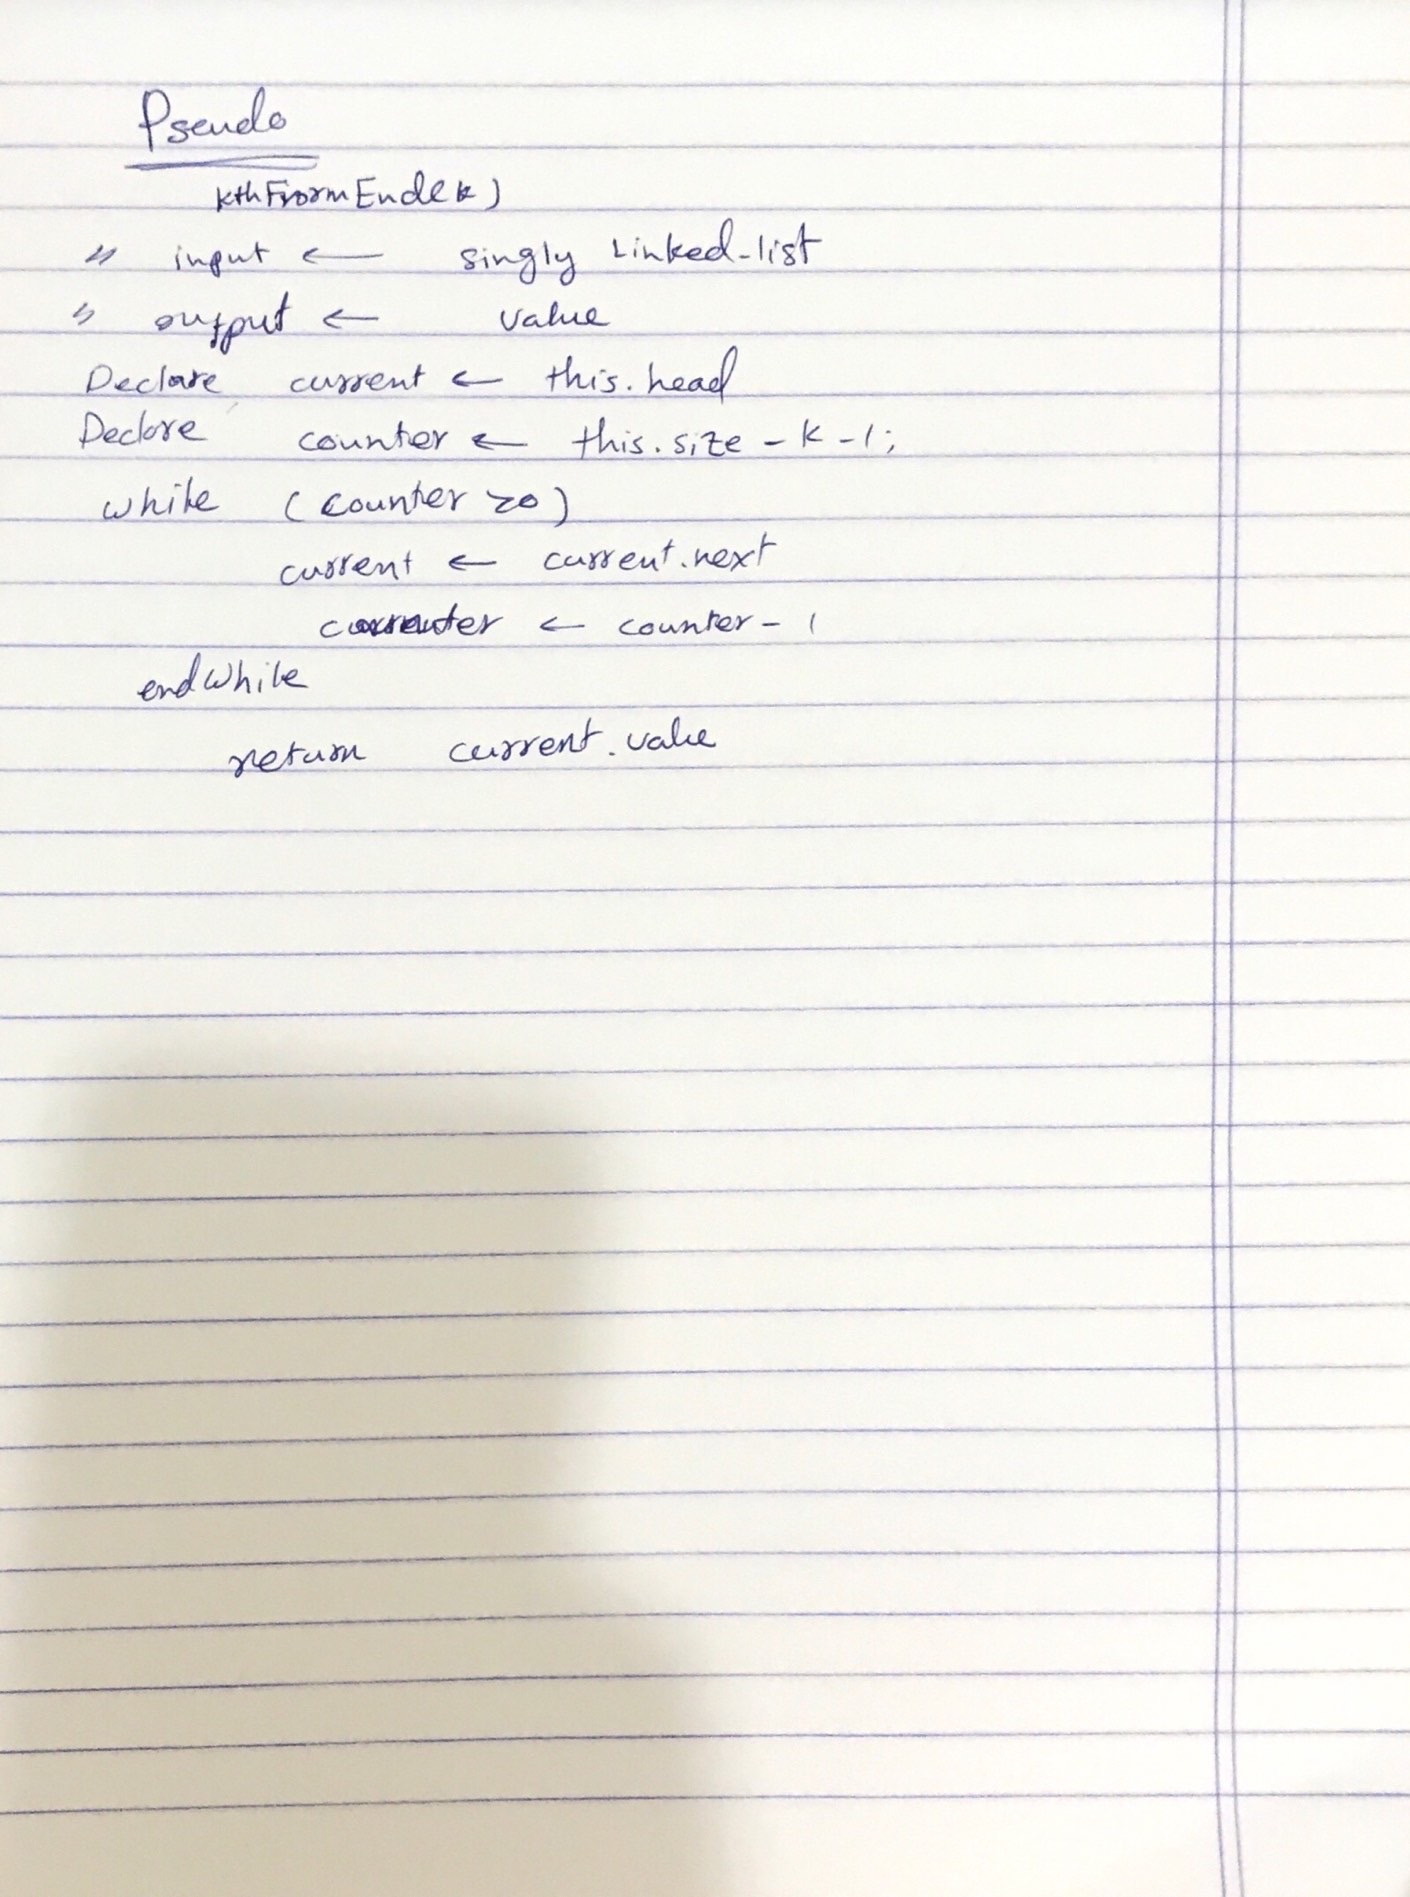 Pseudo
kthFromEnd(k)
// input ← singly Linked-list
// output ← value
Declare current ← this.head
Declare counter ← this.size - k - 1;
while (counter >0)
current ← current.next
counter ← counter - 1
endWhile
return current.value